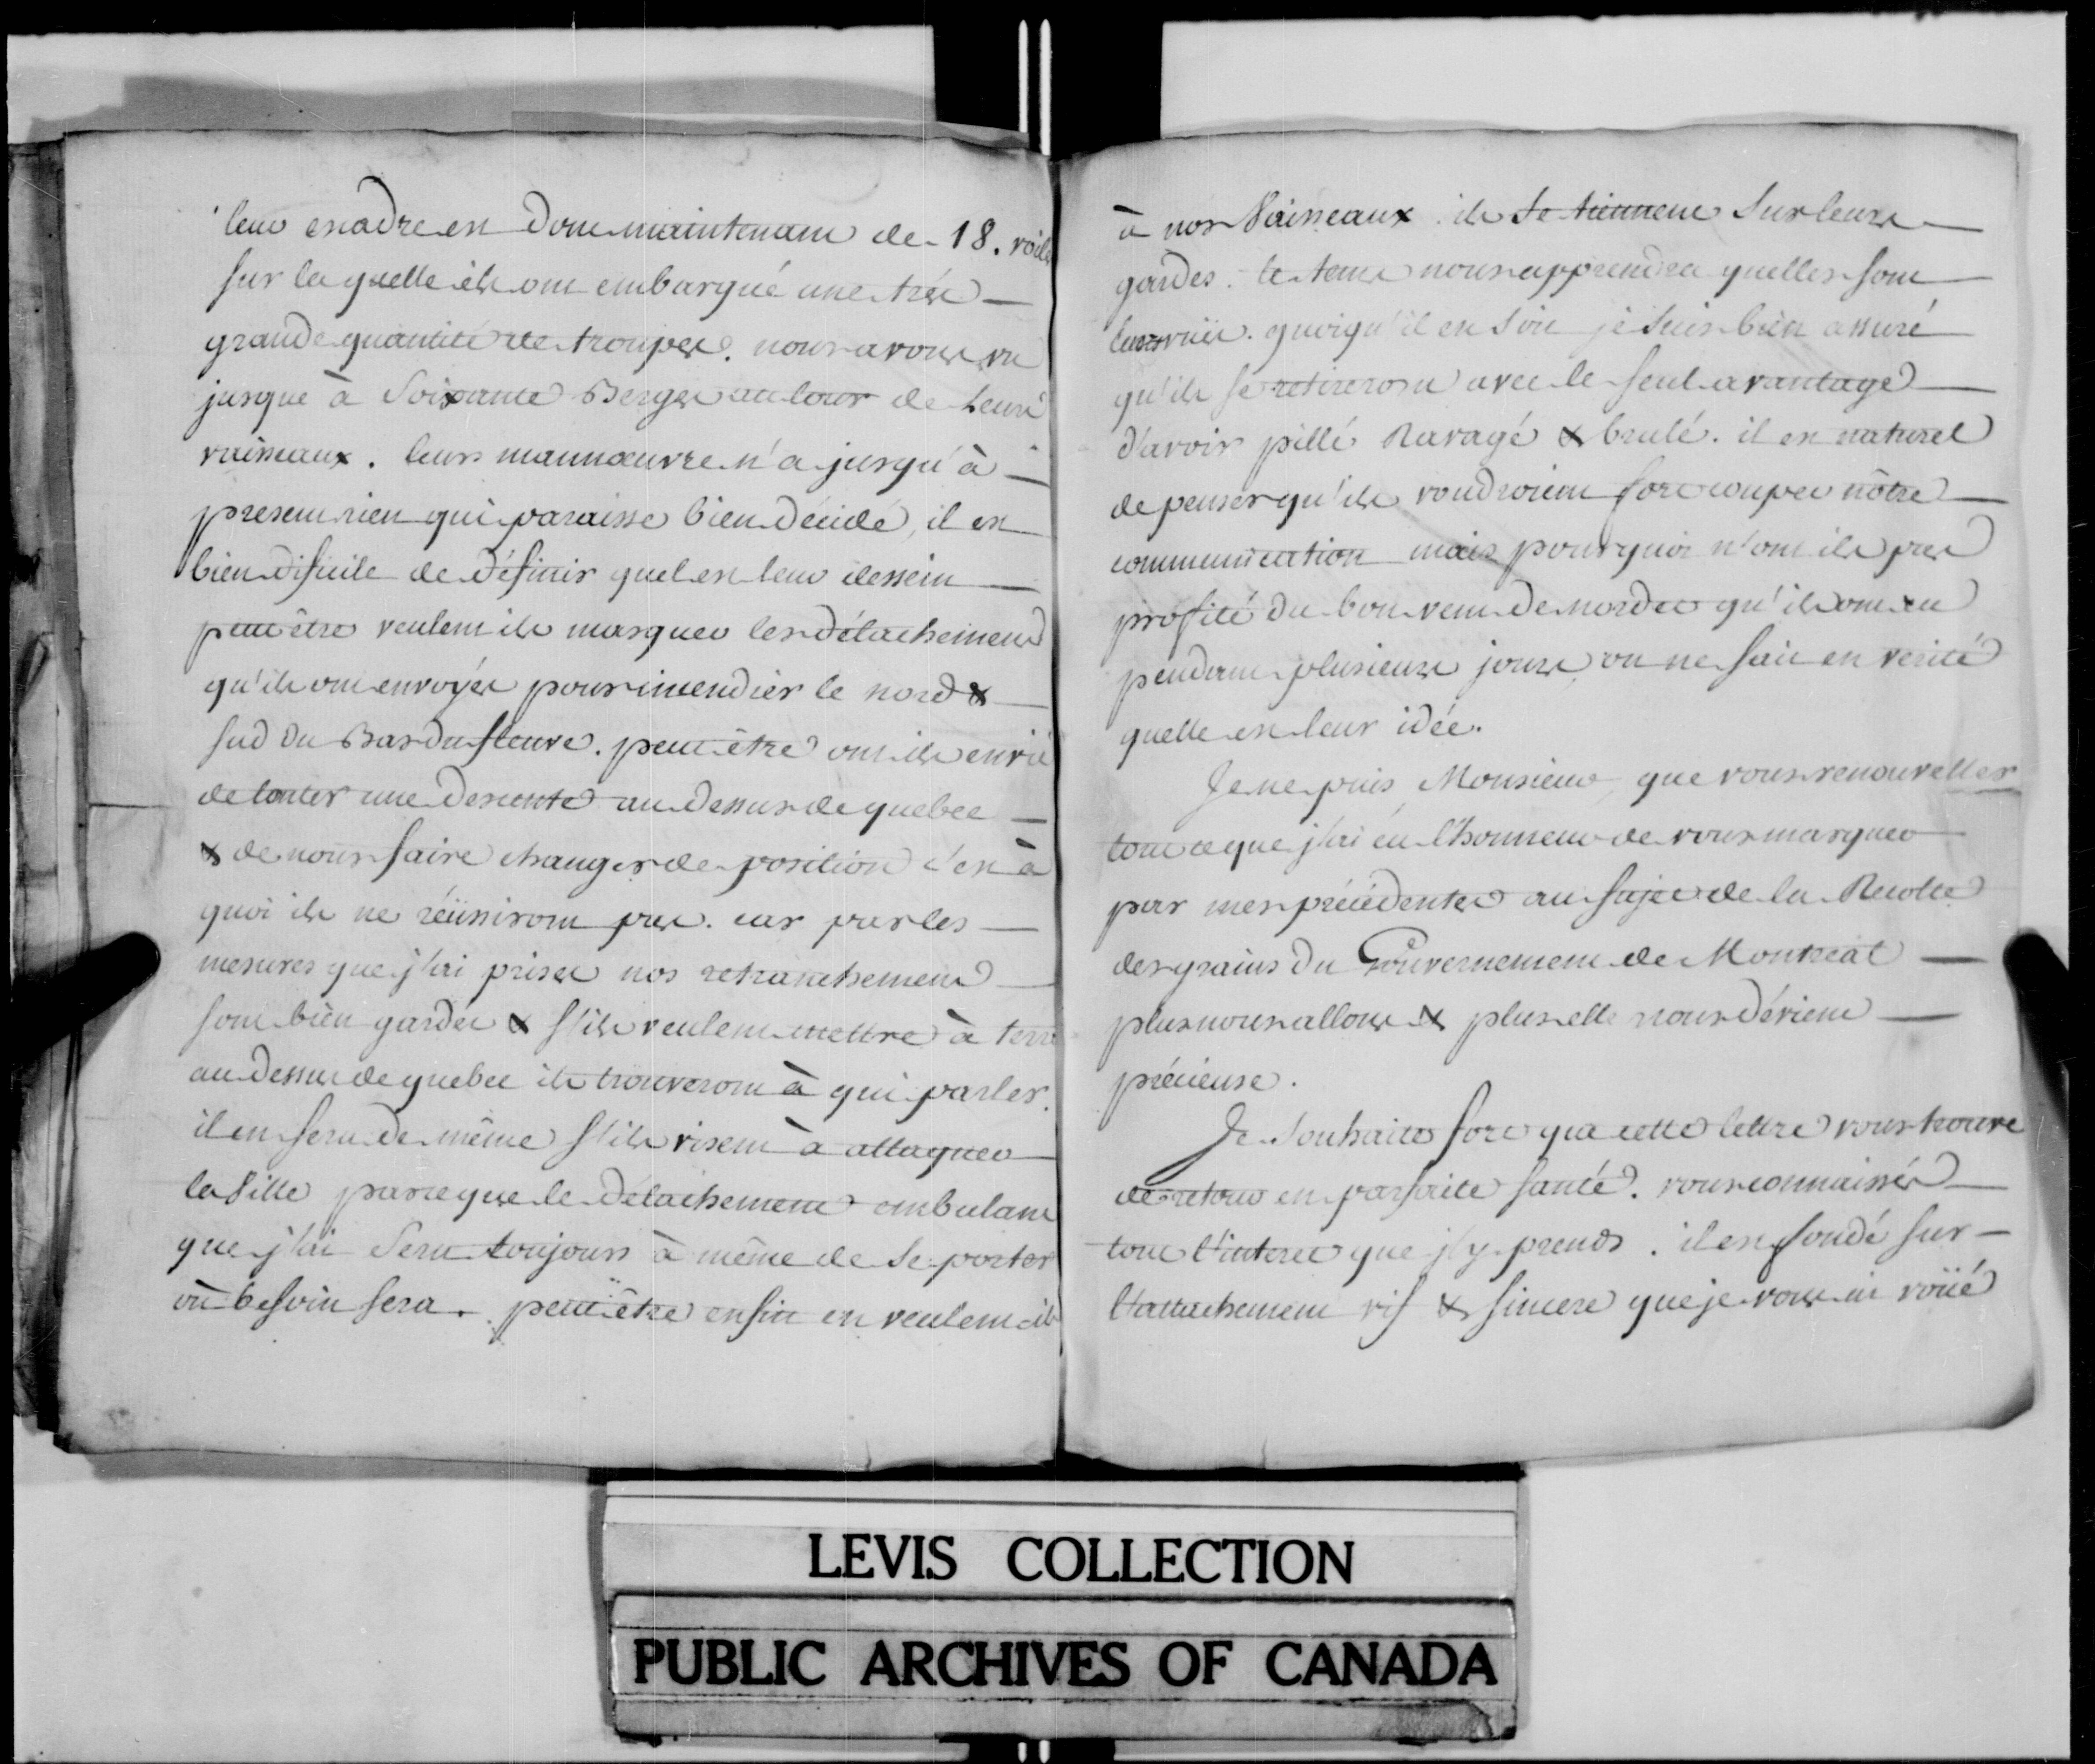 leur escadre est donc maintenant de 18. voiles
sur la quelle ils ont embarqué une très
grande quantité de troupes. nous avons vu
jusque à Soixante Berges au tour de leurs
vaisseaux. leurs mannœuvre n'a jusqu'à
present rien qui paraisse bien décidé, il est
bien dificile de définir quel est leur dessein
peut être veulent ils masquer les détachements
qu'ils ont envoyés pour incendier le nord &
sud du Bas du fleuve. peut être ont ils envie
de tenter une descente au dessus de quebec
& de nous faire changer de position c'est à
quoi ils ne réüssiront pas. car par les
mesures que j'ai prises nos retranchements
sont bien gardés & s'ils veulent mettre à terre
au dessus de quebec ils trouveront à qui parler.
il en sera de même s'ils visent à attaquer
la Ville parceque le détachement embulant
que j'ai Sera toujours à même de Se porter
où besoin sera. peut être enfin en veulent ils
à nos Vaisseaux. ils Se tiennent Sur leurs
gardes. le tems nous apprendra quelles sont
leurs vües. quoiqu'il en Soit je Suis bien assuré
qu'ils se retireront avec le seul avantage
d'avoir pillé Ravagé & brulé. il est naturel
de penser qu'ils voudroient fort couper nôtre
communication mais pourquoi n'ont ils pas
profité du bon vent de nordet qu'ils ont eu
pendant plusieurs jours, on ne sait en verité
quelle est leur idée.
Je ne puis, Monsieur, que vous renouveller
tout ce que j'ai eu l'honneur de vous marquer
par mes précédentes au sujet de la Recolte
des grains du Gouvernement de Montreal
plus nous allons & plus elle nous dévient
précieuse.
Je Souhaite fort que cette lettre vous trouve
de retour en parfaite santé. vous connaissés
tout l'interet que j'y prends. il est fondé sur
l'attachement vif & sincere que je vous ai voüé
LEVIS COLLECTION
PUBLIC ARCHIVES OF CANADA